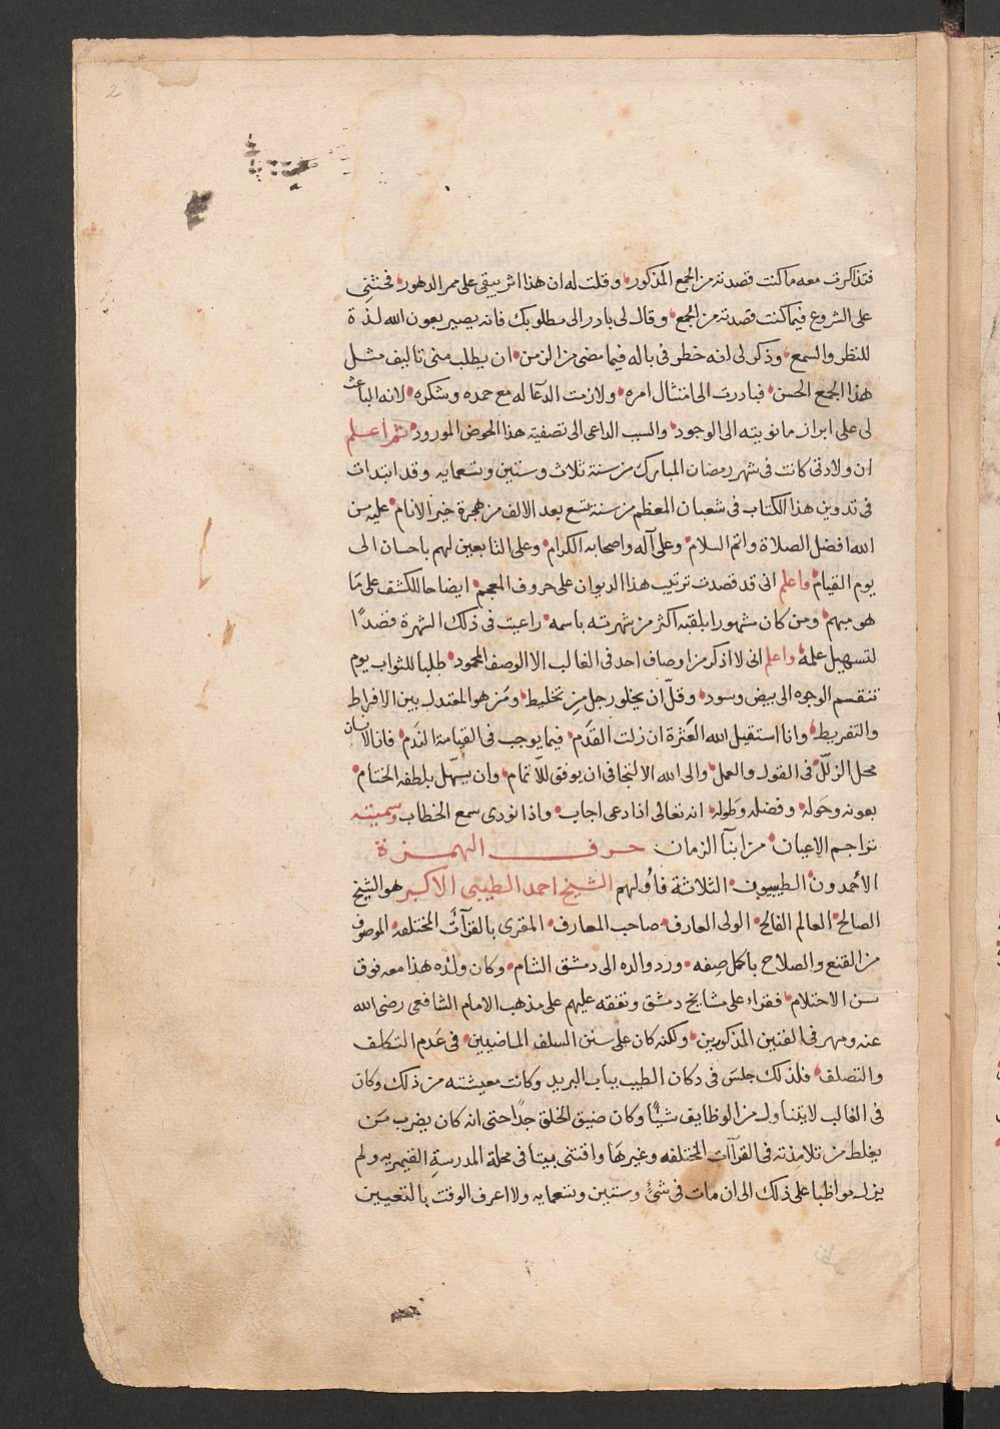 2
فتذاكرت معه ما كنت قصدته من الجمع المذكور، وقلت له ان هذا اثر يبقى على ممر الدهور، فحثني
على الشروع فيما كنت قصدته من الجمع، وقال لى بادر الى مطلوبك فانه يصير بعون الله لذة
للنظر والسمع، وذكر لى انه خطر فى باله فيما مضى من الزمن، ان يطلب منى تاليف مثل
هذا الجمع الحسن، فبادرت الى امتثال امره، ولازمت الدعآ له مع حمده وشكره، لانه الباعث
لى على ابراز ما نويته الى الوجود، والسبب الداعى الى تصفية هذا الحوض المورود، ثم اعلم
ان ولادتى كانت فى شهر رمضان المبارك من سنة ثلاث وستين وتسعمايه وقد ابتدات
فى تدوين هذا الكتاب فى شعبان المعظم من سنة تسع بعد الالف من هجرة خير الانام، عليه من
الله افضل الصلاة واتم السلام، وعلى آله واصحابه الكرام، وعلى التابعين لهم باحسان الى
يوم القيام، واعلم انى قد قصدت ترتيب هذا الديوان على حروف المعجم، ايضاحا للكشف على مَا
هو مبهم، ومن كان مشهورا بلقبه اكثر من شهرته باسمه، راعيت فى ذلك الشهرة قصدًا
لتسهيل علمه، واعلم انى لا اذكر من اوصاف احد فى الغالب الا الوصف المحمود، طلبا للثواب يوم
تنقسم الوجوه الى بيض وسود، وقلّ ان يخلو رجل مِن تخليط، ومَن هو المعتدل بين الافراط
والتفريط، وانا استقيل الله العَثرة ان زلت القَدَم، فيما يوجب فى القيامة الندَم، فان الانسان
محل الزلَل، فى القول والعمل، والى الله الالتجا فى ان يوفق للاتمام، وان يسهّل بلطفه الختام،
بعونه وحَوله، وفضله وطَوله، انه تعالى اذا دعى اجاب، واذا نودى سمع الخطاب وسميته
تراجم الاعيان، من ابنآ الزمان، حرف الهمزة
الاحمدون، الطيبيون، الثلاثة فاولهم الشيخ احمد الطيبى الاكبر هو الشيخ
الصالح، العالم الفالح، الولى العارف، صاحب المعارف، المقرى بالقرآت المختلفه، الموصوف
من القنع والصلاح باكمل صِفه، ورد والده الى دمشق الشام، وكان ولَده هذا معه فوق
سن الاحتلام، فقراء على مشايخ دمشق وتفقه عليهم على مذهب الامام الشافعى رضى الله
عنه ومهر فى الفنين المذكورين، ولكنه كان على سنن السلف الماضيين، فى عَدم التكلف
والتصلف، فلذلك جلسَ فى دكان الطيب بباب البريد وكانت معيشته من ذلك وكان
فى الغالب لا يتناول من الوظايف شيئًا وكان ضيق الخلق جدًا حتى انه كان يضرب مَن
يغلط من تلامذته فى القرآات المختلفه وغيرهَا واقتنى بيتا فى محلة المدرسةِ القيمريه ولم
يزل مواظبا على ذلك الى ان مات فى شئ وستين وتسعمايه ولا اعرف الوقت بالتعيين